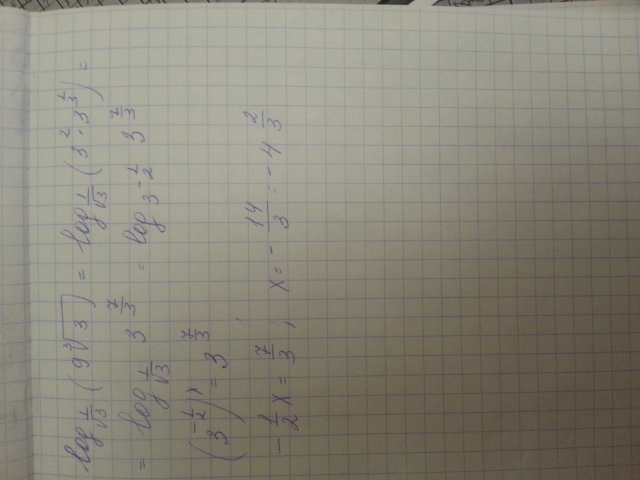 log_{1/√3} (9∛3) = log_{1/√3} (3^2 · 3^{1/3}) =
= log_{1/√3} 3^{7/3} = log_{3^{-1/2}} 3^{7/3}
(3^{-1/2})^x = 3^{7/3};
-1/2 x = 7/3; x = -14/3 = -4 2/3